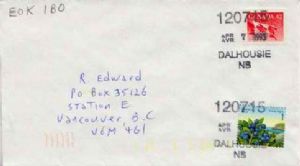 E0K 1B0
120715
APR
AVR 7 1993
DALHOUSIE
NB
R. Edward
PO Box 35126
Station E
Vancouver, B.C
V6M 4G1
120715
APR
AVR 7
DALHOUSIE
NB